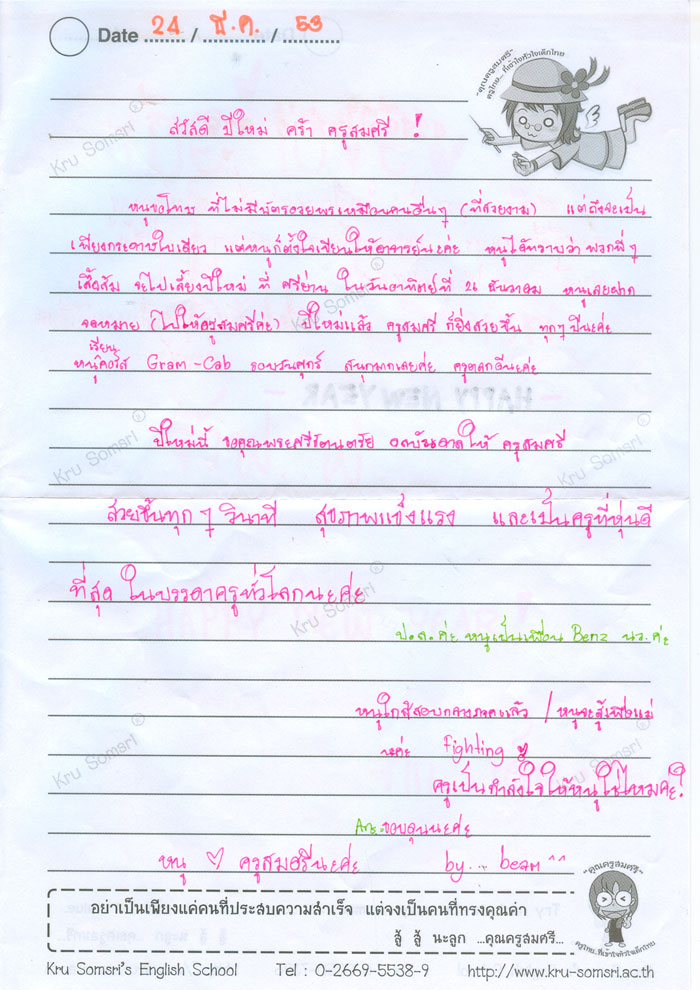 Date 24 / ธ.ค. / 53
"คุณครูสมศรี"
ครูไทย... ที่เข้าใจหัวใจเด็กไทย
สวัสดี ปีใหม่ คร้า ครูสมศรี !
หนูขอโทษ ที่ไม่มีบัตรอวยพรเหมือนคนอื่นๆ (ที่สวยงาม) แต่ถึงจะเป็น
เพียงกระดาษใบเดียว แต่หนูก็ตั้งใจเขียนให้อาจารย์นะค่ะ หนูได้ทราบว่า พวกพี่ๆ
เสื้อส้ม จะไปเลี้ยงปีใหม่ ที่ ศรีย่าน ในวันอาทิตย์ที่ 26 ธันวาคม หนูเลยฝาก
จดหมาย (ไปให้ครูสมศรีค่ะ) ปีใหม่แล้ว ครูสมศรี ก็ยิ่งสวยขึ้น ทุกๆ ปีนะค่ะ
เรียน
หนูคอร์ส Gram-Cab รอบวันศุกร์ สนุกมากเลยค่ะ ครูตลกดีนะค่ะ
HAPPY NEW YEAR
ปีใหม่นี้ ขอคุณพระศรีรัตนตรัย ดลบันดาลให้ ครูสมศรี
สวยขึ้นทุกๆ วินาที สุขภาพแข็งแรง และเป็นครูที่หุ่นดี
ที่สุด ในบรรดาครูทั่วโลกนะค่ะ
ป.ล. ค่ะ หนูเป็นเพื่อน Benz นว. ค่ะ
หนูใกล้สอบกลางภาคแล้ว / หนูจะสู้เพื่อแม่
นะค่ะ fighting
ครูเป็นกำลังใจให้หนูใช่ไหมค่ะ?
ขอบคุณนะค่ะ
หนู ♡ ครูสมศรีนะค่ะ by... beam ^^
อย่าเป็นเพียงแค่คนที่ประสบความสำเร็จ แต่จงเป็นคนที่ทรงคุณค่า
สู้ สู้ นะลูก ...คุณครูสมศรี...
"คุณครูสมศรี"
ครูไทย...ที่เข้าใจหัวใจเด็กไทย
Kru Somsri's English School Tel : 0-2669-5538-9 http://www.kru-somsri.ac.th
Kru Somsri ©
Kru Somsri ©
Kru Somsri ©
Kru Somsri ©
Kru Somsri ©
Kru Somsri ©